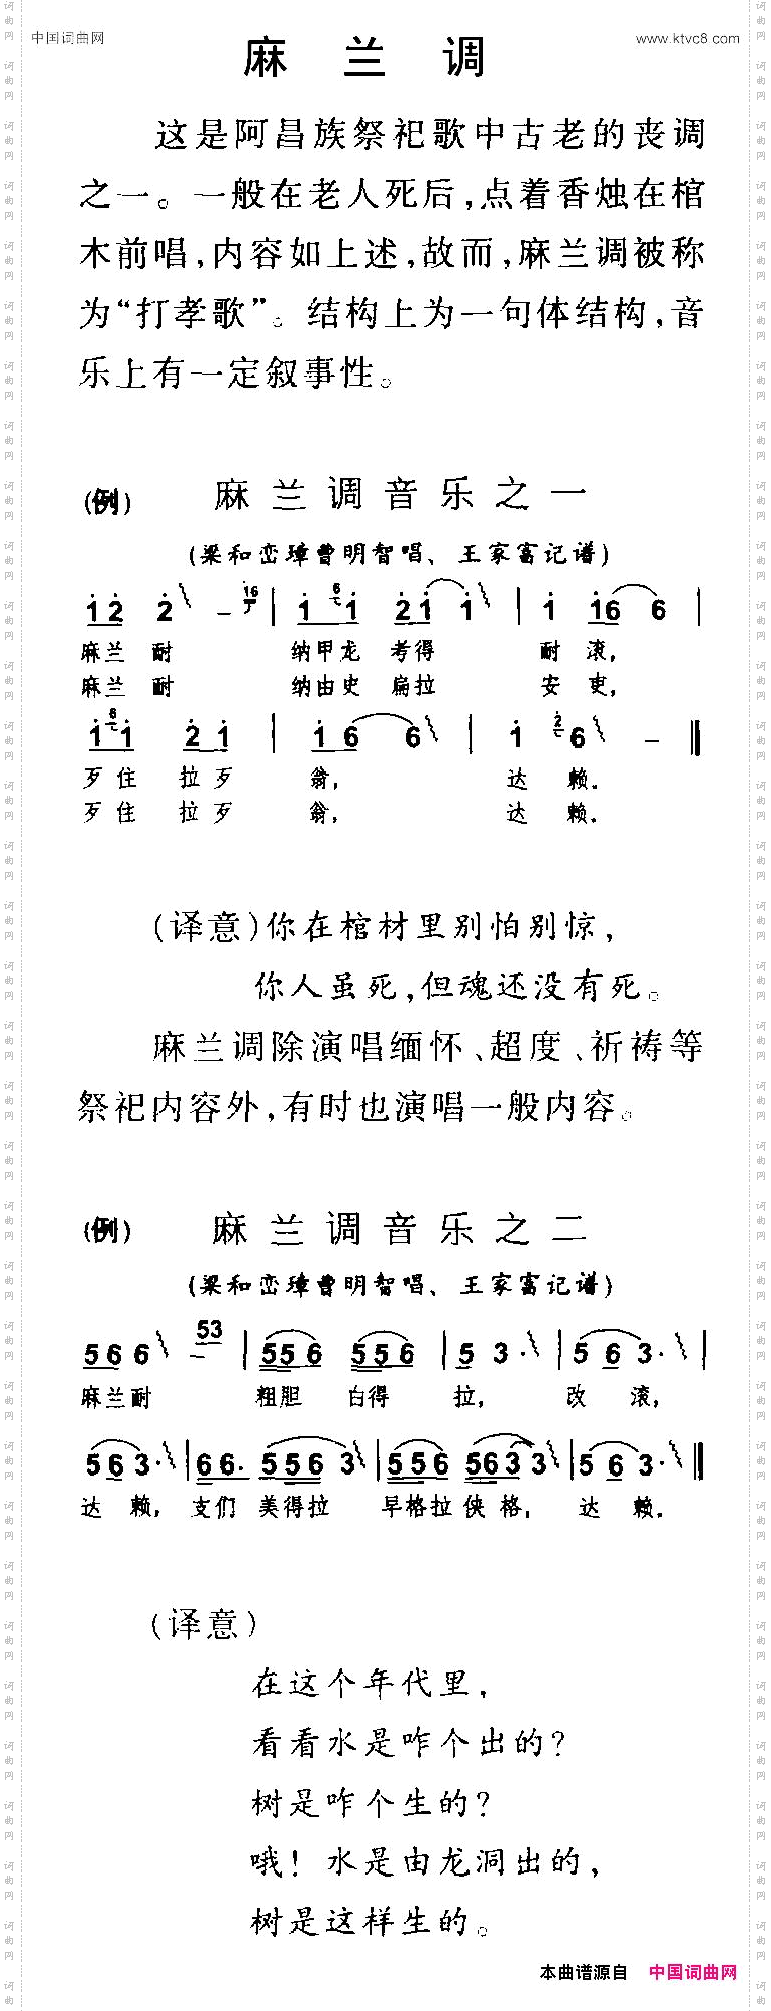 中国词曲网
www.ktvc8.com
麻兰调
这是阿昌族祭祀歌中古老的丧调
之一。一般在老人死后,点着香烛在棺
木前唱,内容如上述,故而,麻兰调被称
为“打孝歌”。结构上为一句体结构,音
乐上有一定叙事性。
(例) 麻兰调音乐之一
(梁和峦璋曹明智唱、王家富记谱)
1 2 2 - 16 | 1 6 1 2 1 1 | 1 1 6 6 |
麻兰 耐 纳甲龙 考得 耐 滚,
麻兰 耐 纳由史 扁拉 安 吏,
1 6 1 2 1 | 1 6 6 | 1 2 6 - ‖
歹住 拉歹 翁, 达 赖.
歹住 拉歹 翁, 达 赖.
(译意)你在棺材里别怕别惊,
你人虽死,但魂还没有死。
麻兰调除演唱缅怀、超度、祈祷等
祭祀内容外,有时也演唱一般内容。
(例) 麻兰调音乐之二
(梁和峦璋曹明智唱、王家富记谱)
5 6 6 - 53 | 5 5 6 5 5 6 | 5 3 · | 5 6 3 · |
麻兰耐 粗胆 白得 拉, 改 滚,
5 6 3 · | 6 6 · 5 5 6 3 | 5 5 6 5 6 3 3 | 5 6 3 · ‖
达 赖, 支们 美得拉 早格拉侠格, 达 赖.
(译意)
在这个年代里,
看看水是咋个出的?
树是咋个生的?
哦! 水是由龙洞出的,
树是这样生的。
本曲谱源自 中国词曲网